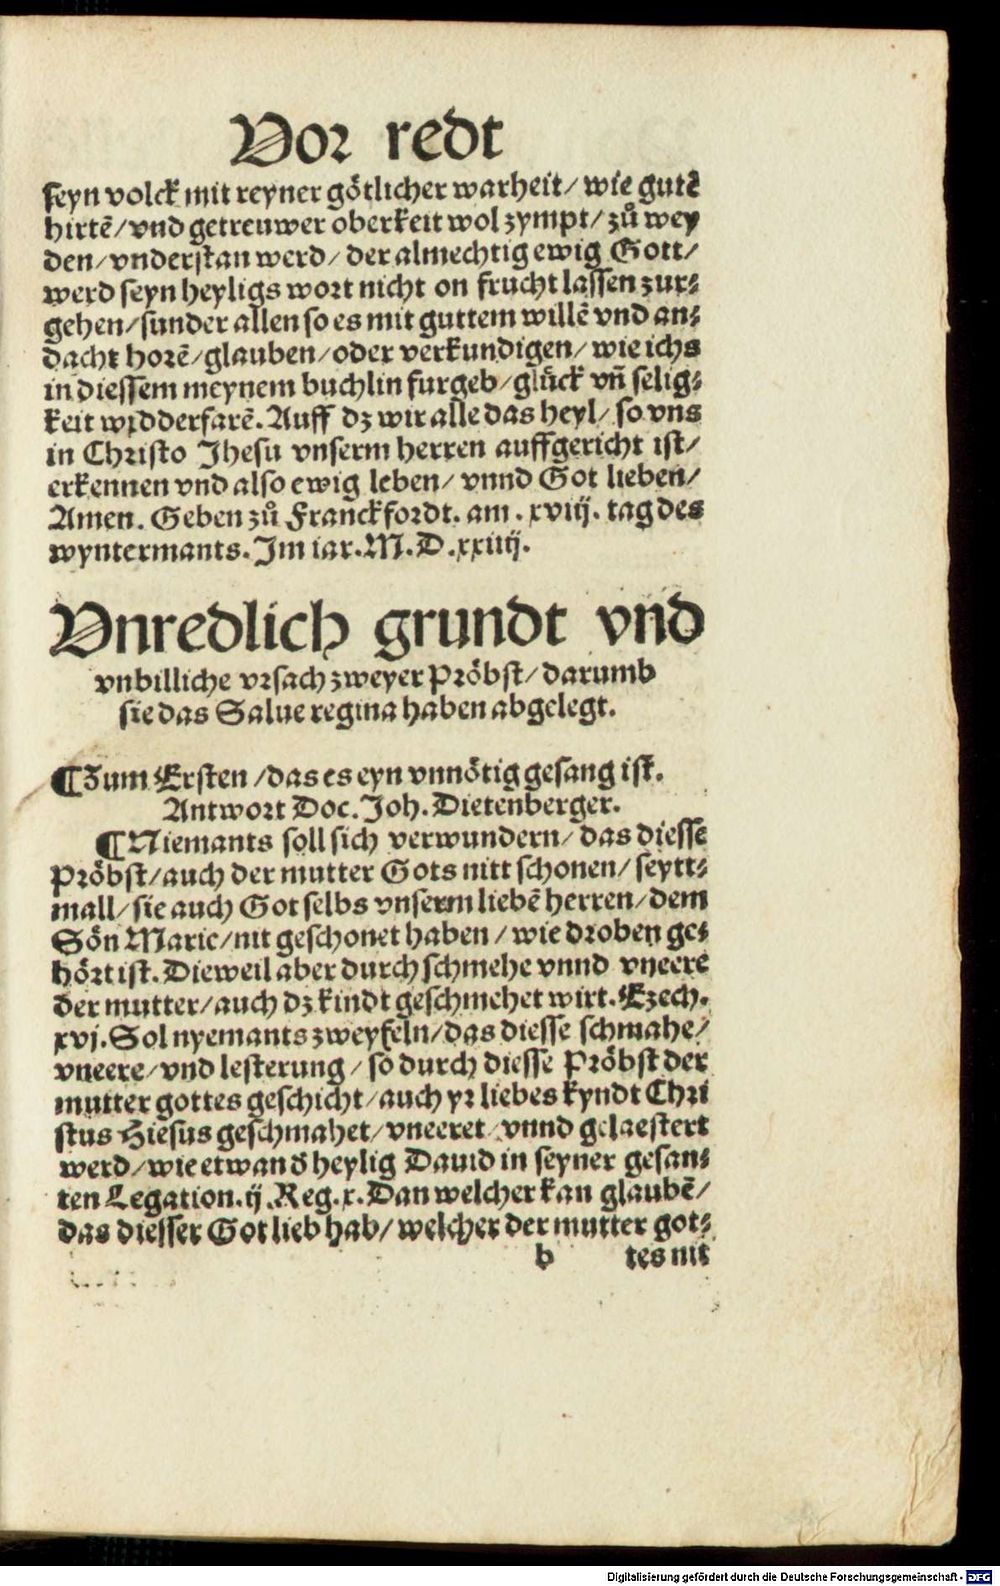 Vor redt
seyn volck mit reyner götlicher warheit/ wie gutẽ
hirtẽ/ vnd getreuwer oberkeit wol zympt/ zů wey
den/ vnderstan werd/ der almechtig ewig Gott/
werd seyn heyligs wort nicht on frucht lassen zur⸗
gehen/ sunder allen so es mit guttem willẽ vnd an⸗
dacht horẽ/ glauben/ oder verkundigen/ wie ichs
in diessem meynem buchlin furgeb/ glück vñ selig⸗
keit widderfarẽ. Auff dz wir alle das heyl/ so vns
in Christo Jhesu vnserm herren auffgericht ist/
erkennen vnd also ewig leben/ vnnd Got lieben/
Amen. Geben zů Franckfordt. am. xviij. tag des
wyntermants. Im iar. M. D. xxiiij.
Vnredlich grundt vnd
vnbilliche vrsach zweyer Pröbst/ darumb
sie das Salue regina haben abgelegt.
¶Zum Ersten/ das es eyn vnnötig gesang ist.
Antwort Doc. Joh. Dietenberger.
¶Niemants soll sich verwundern/ das diesse
Pröbst/ auch der mutter Gots nitt schonen/ seytt⸗
mall/ sie auch Got selbs vnserm liebẽ herren/ dem
Sön Marie/ nit geschonet haben/ wie droben ge⸗
hört ist. Dieweil aber durch schmehe vnnd vneere
der mutter/ auch dz kindt geschmehet wirt. Ezech.
xvj. Sol nyemants zweyfeln/ das diesse schmahe/
vneere/ vnd lesterung/ so durch diesse Pröbst der
mutter gottes geschicht/ auch yr liebes kyndt Chri
stus Hiesus geschmahet/ vneeret/ vnnd gelaestert
werd/ wie etwan d̃ heylig Dauid in seyner gesan⸗
ten Legation. ij. Reg. x. Dan welcher kan glaubẽ/
das diesser Got lieb hab/ welcher der mutter got⸗
b tes nit
Digitalisierung gefördert durch die Deutsche Forschungsgemeinschaft - DFG